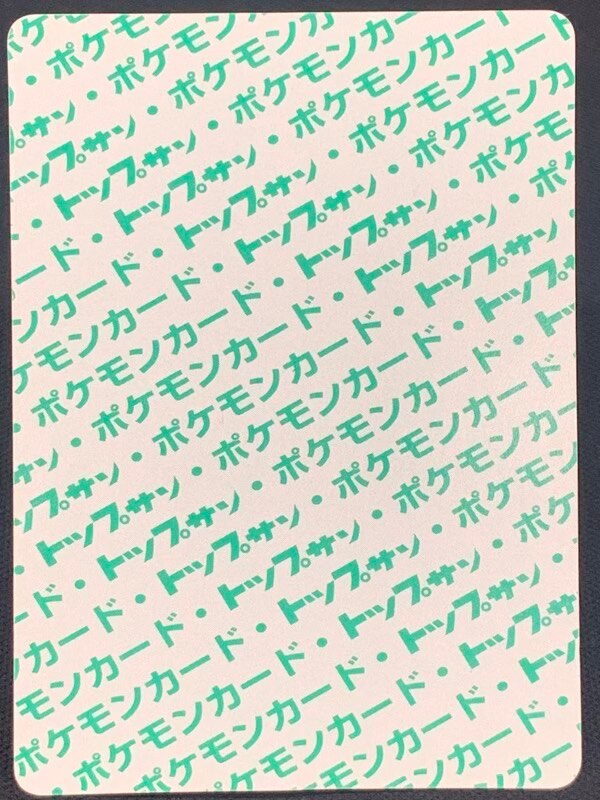 ・ポケモン
プサン・ポケモンカ
ップサン・ポケモンカ
・トップサン・ポケモンカー
ード・トップサン・ポケモンカード
ンカード・トップサン・ポケモンカード
ケモンカード・トップサン・ポケモンカ
・ポケモンカード・トップサン・ポケモ
サン・ポケモンカード・トップサン・ポ
ップサン・ポケモンカード・トップサン・
・トップサン・ポケモンカード・トップサ
ード・トップサン・ポケモンカード・ト
カード・トップサン・ポケモンカード
モンカード・トップサン・ポケモンカ
ポケモンカード・トップサン・ポケモン
・ポケモンカード・トップサン・ポ
ポケモンカード・トップサン・
ケモンカード・トップサ
モンカード・ト
ンカード・